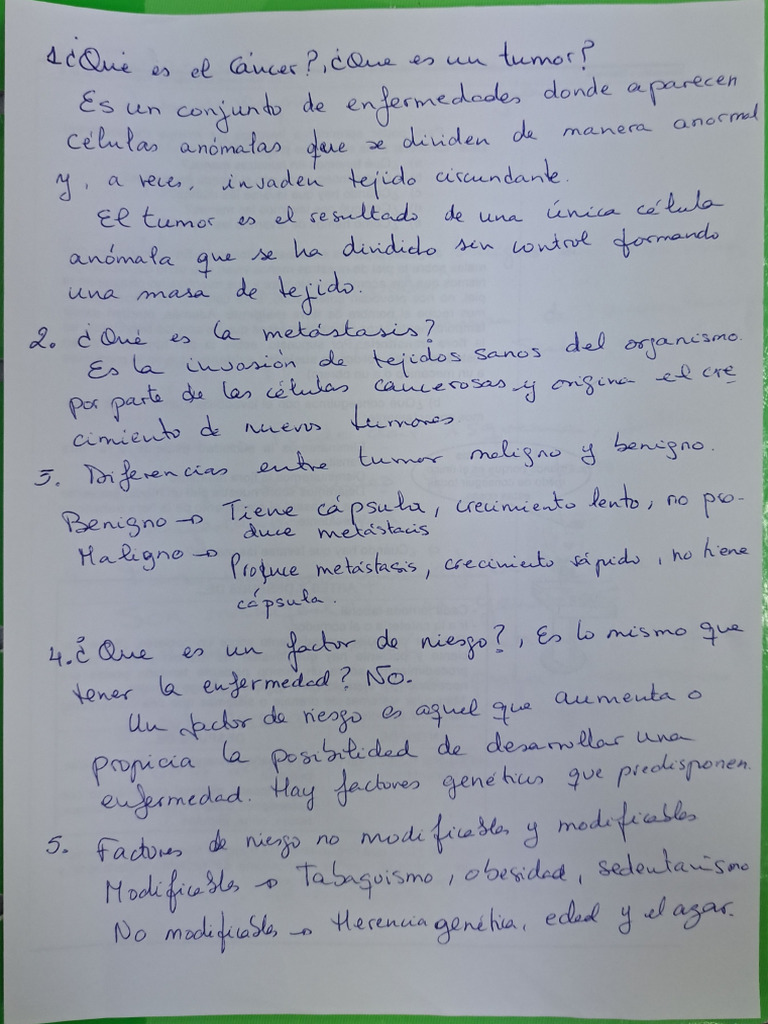 1 ¿Qué es el Cáncer?, ¿Que es un tumor?
Es un conjunto de enfermedades donde aparecen
células anómalas que se dividen de manera anormal
y, a veces, invaden tejido circundante.
El tumor es el resultado de una única célula
anómala que se ha dividido sin control formando
una masa de tejido.
2. ¿Qué es la metástasis?
Es la invasión de tejidos sanos del organismo.
por parte de las células cancerosas y origina el cre
cimiento de nuevos tumores.
3. Diferencias entre tumor maligno y benigno.
Benigno → Tiene cápsula, crecimiento lento, no pro-
duce metástacis
Maligno → Produce metástasis, crecimiento rápido, no tiene
cápsula.
4. ¿Que es un factor de riesgo?, Es lo mismo que
tener la enfermedad? No.
Un factor de riesgo es aquel que aumenta o
propicia la posibilidad de desarrollar una
enfermedad. Hay factores genéticos que predisponen.
5. Factores de riesgo no modificables y modificables
Modificables → Tabaquismo, obesidad, sedentarismo
No modificables → Herencia genética, edad y el azar.